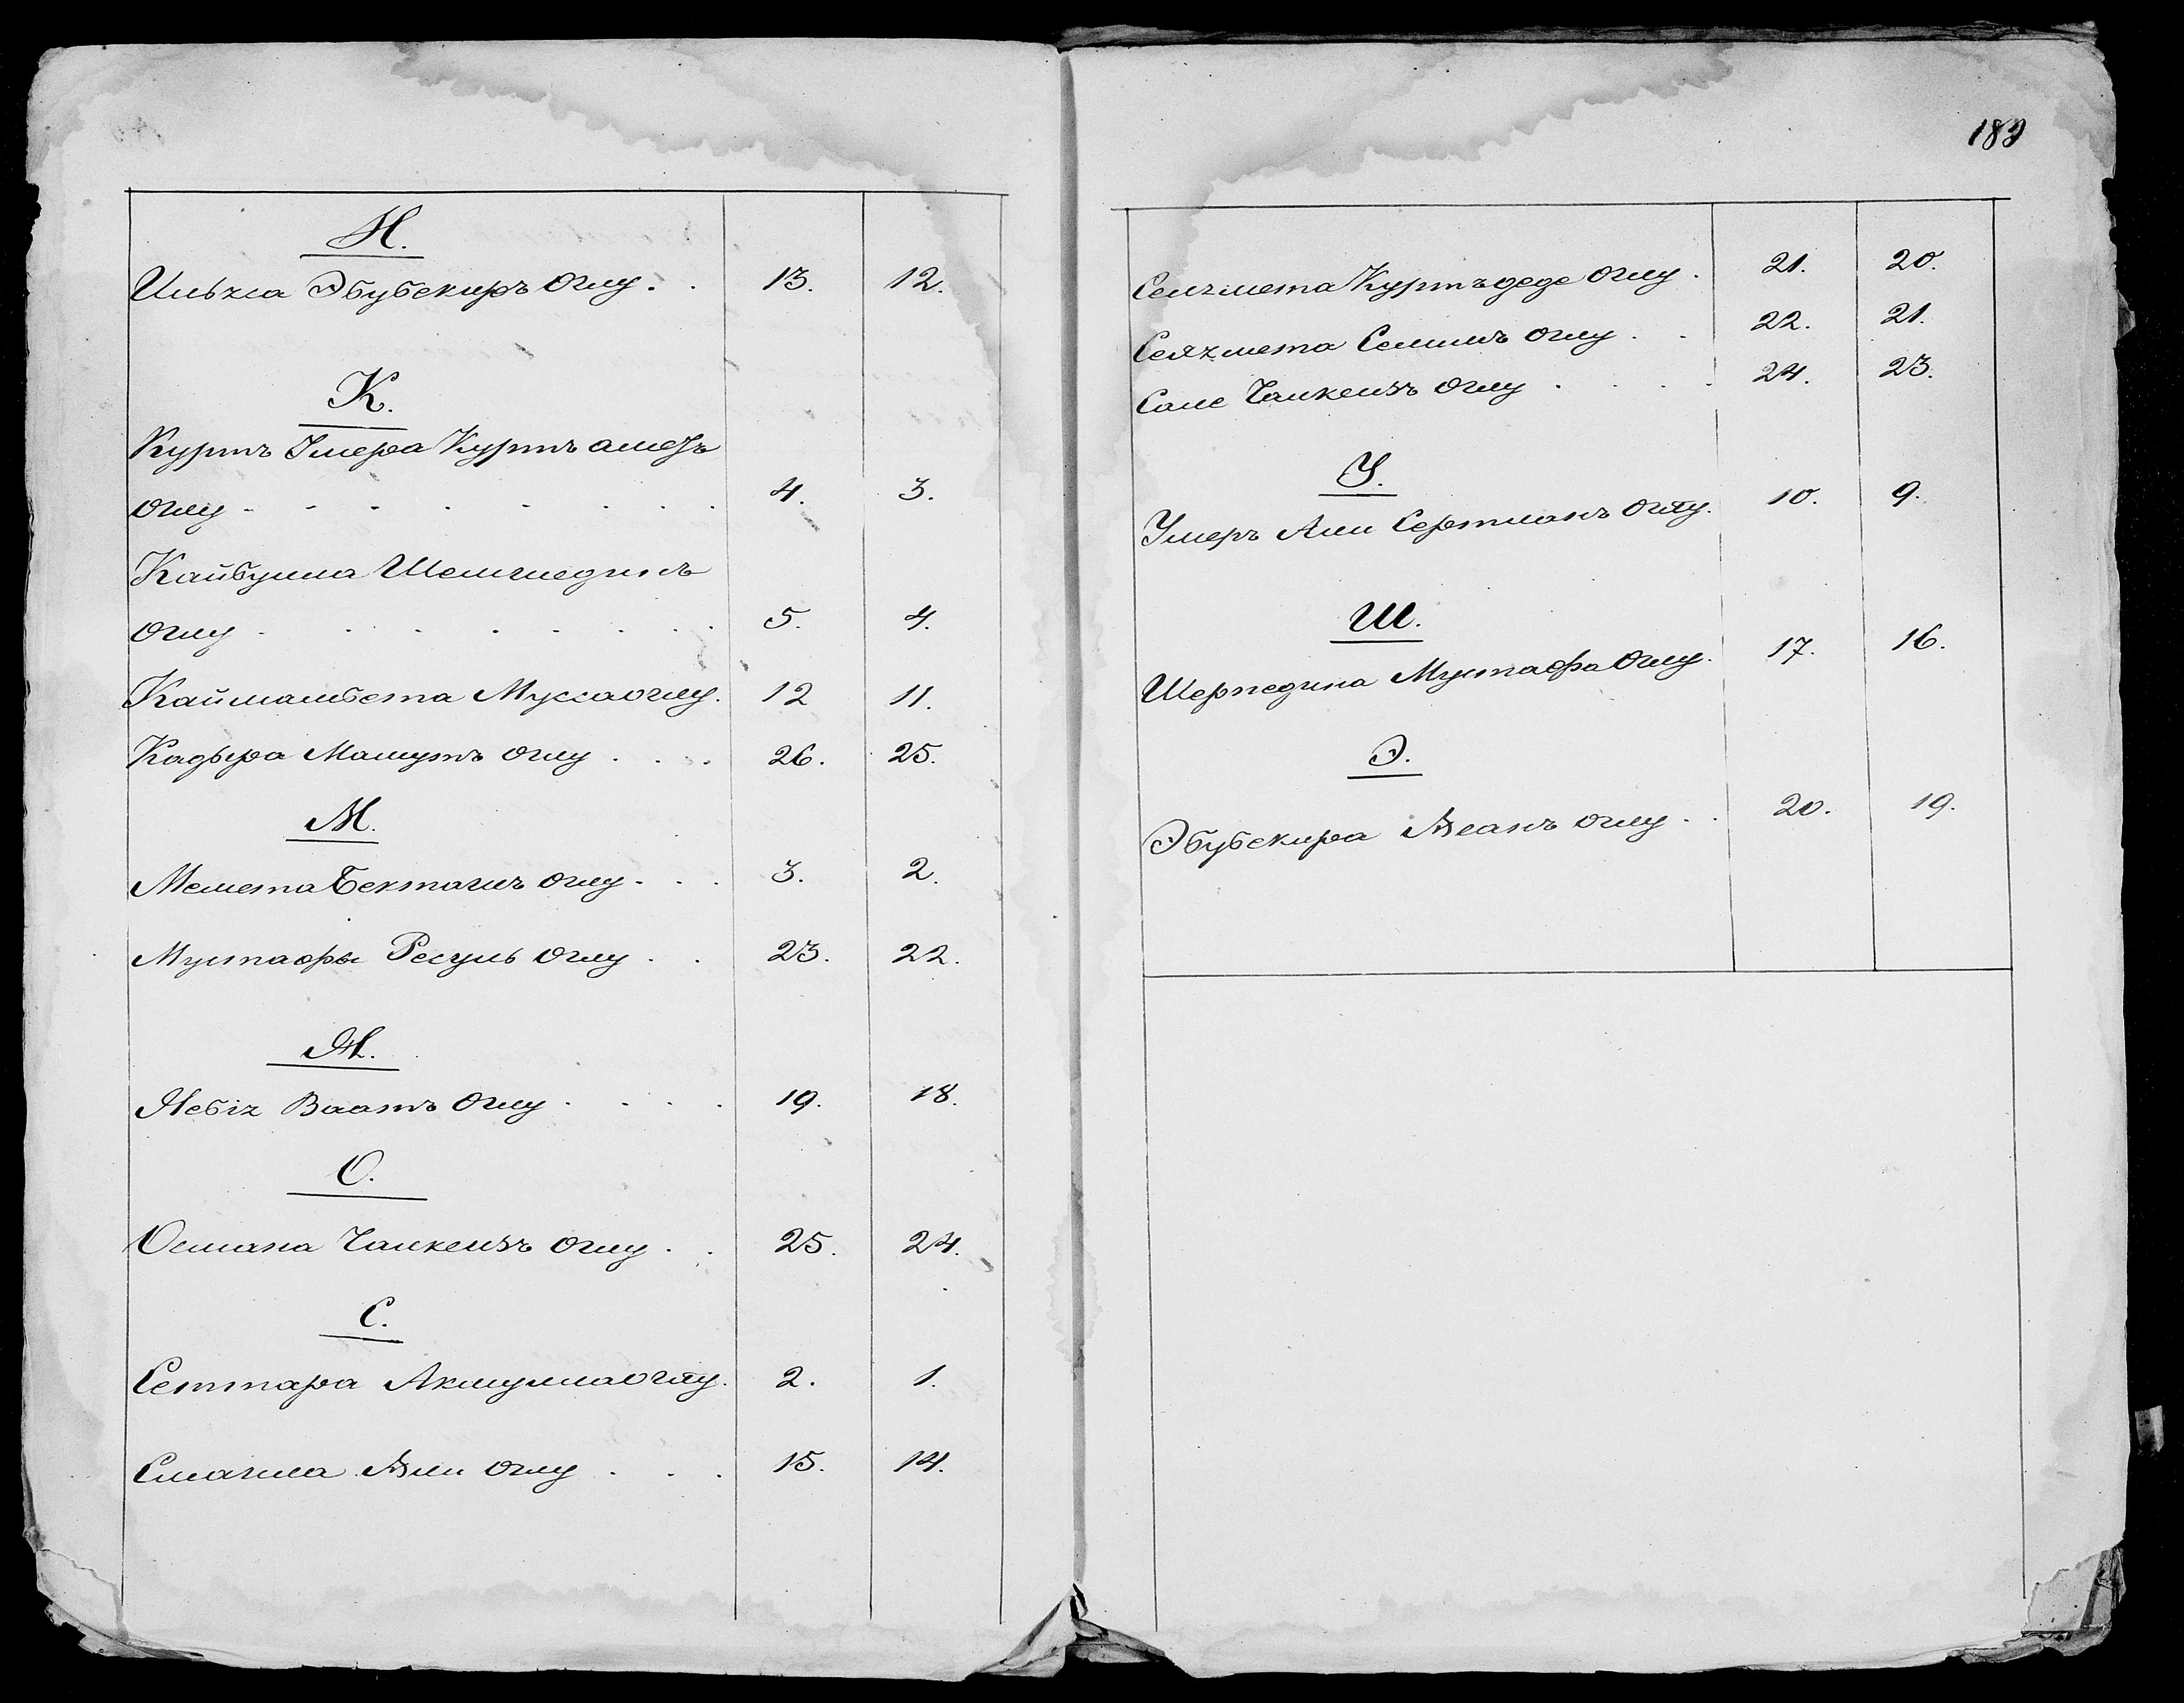 И.
Ильяса Эбубекиръ Оглу. . 13. 12.
К.
Куртъ Умера Куртъ амезъ
оглу - - - - 4. 3.
Кайбулла Шемшединъ
оглу . . . . 5. 4.
Каймамбета Муссаоглу. 12 11.
Кадыра Машутъ оглу . . . 26. 25.
М.
Мемета Бекташъ оглу. . . 3. 2.
Мустафы Ресуль оглу . . 23. 22.
Н.
Небія Ваатъ Оглу . . . . 19. 18.
О.
Османа Чалкенъзъ оглу . . 25. 24.
С.
Сеттара Акмуллаоглу. 2. 1.
Смаила Али оглу . . . 15. 14.
183
Сеямета Куртъдеде Оглу. 21. 20.
Сеямета Селимъ оглу . . 22. 21.
Сале Чалкензъ оглу . . . . 24. 23.
У.
Умеръ Али Сертманъ оглу. 10. 9.
Ш.
Шерпедина Мустафа Оглу. 17. 16.
Э.
Эбубекира Асанъ оглу . . 20. 19.